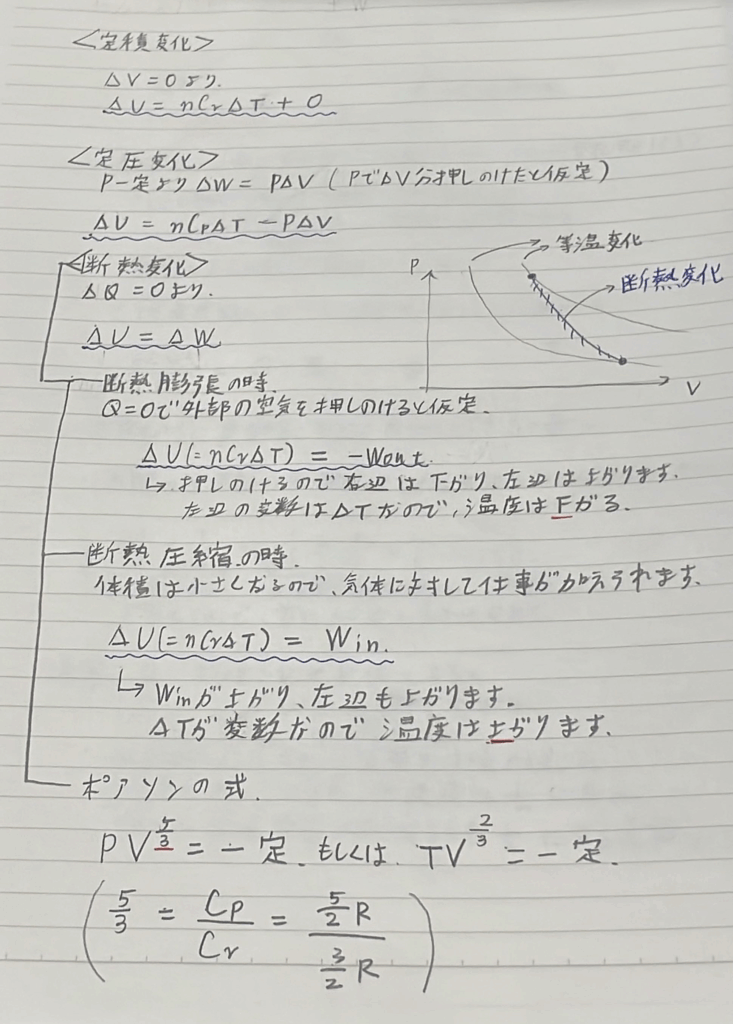 <定積変化>
ΔV=0より.
ΔU = nCvΔT + 0
<定圧変化>
P一定より ΔW = PΔV (PでΔV分押しのけたと仮定)
ΔU = nCpΔT − PΔV
<断熱変化>
ΔQ = 0より.
ΔU = ΔW
P
等温変化
断熱変化
V
断熱膨張の時.
Q=0で外部の空気を押しのけると仮定.
ΔU(=nCvΔT) = -Wout.
↳押しのけるので右辺は下がり、左辺は上がります.
左辺の変数はΔTなので,温度は下がる.
断熱圧縮の時.
体積は小さくなるので、気体にたいして仕事が加えられます.
ΔU(=nCvΔT) = Win.
↳Winが上がり、左辺も上がります.
ΔTが変数なので温度は上がります.
ポアソンの式.
PV^(5/3) = 一定. もしくは. TV^(2/3) = 一定.
(5/3 = Cp/Cv = (5/2 R)/(3/2 R))